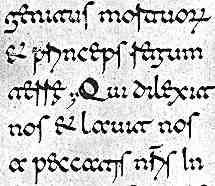 genitus mortuoꝝ
& princeps regum
terre ; Qui dilexit
nos & lauit nos
a peccatis nr̃is In